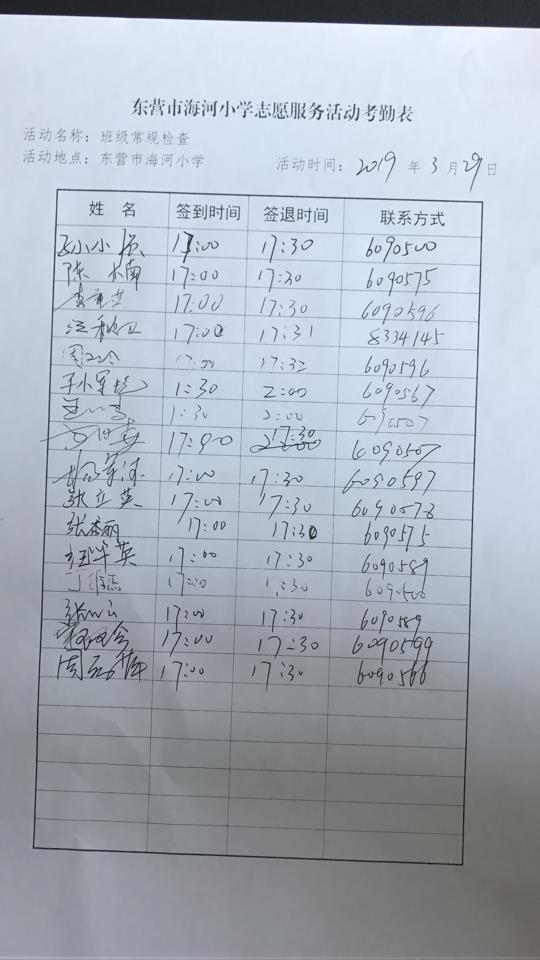 东营市海河小学志愿服务活动考勤表
活动名称：班级常规检查
活动地点：东营市海河小学 活动时间：2019年3月29日
姓名 签到时间 签退时间 联系方式
小小 17:00 17:30 6090500
陈 17:00 17:30 6090575
17:00 17:30 6090596
17:00 17:31 8334145
周 17:00 17:32 6090596
小军 1:30 2:00 6090567
1:30 2:00 6090507
17:00 17:30 6090507
17:00 17:30 6090597
张立英 17:00 17:30 6090578
张杰丽 17:00 17:30 6090575
华英 17:00 17:30 6090589
17:30 6090500
张 17:00 17:30 6090589
17:00 17:30 6090599
周 17:00 17:30 6090566